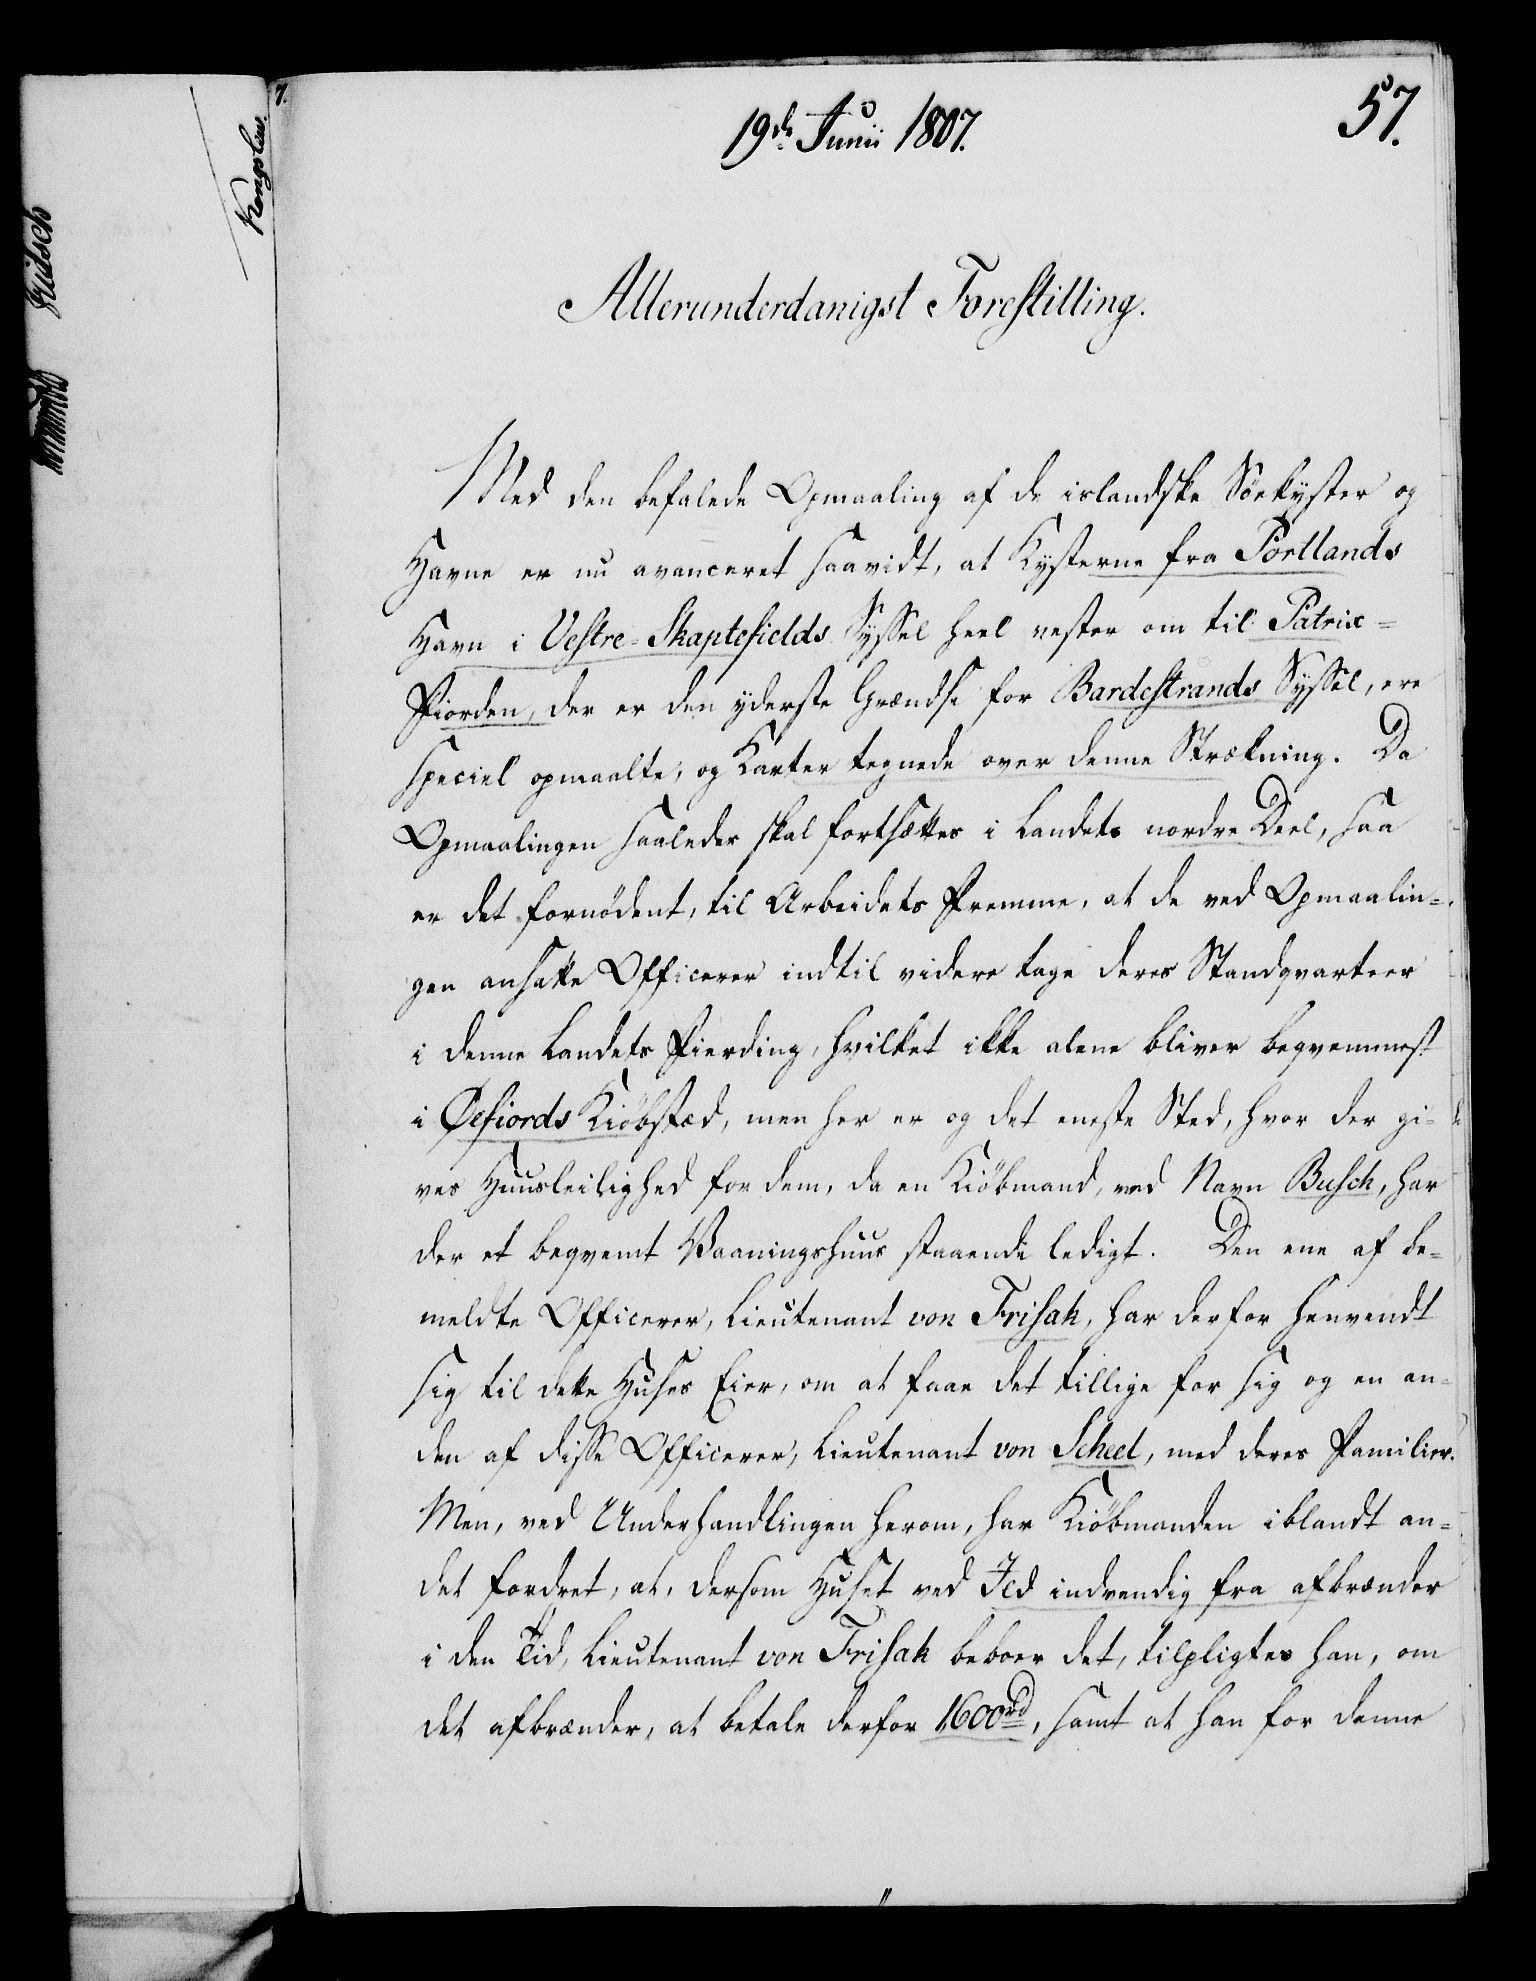 19de Junii 1807.
57.
Allerunderdanigst Forestilling.
Med den befalede Opmaaling af de islandske Söekyster og
Havne er nu avanceret saavidt, at Kysterne fra Portlands
Havn i Vestre-Skaptefields Syssel heel vester om til Patrix=
Fiorden, der er den yderste Grændse for Bardestrands Syssel, ere
speciel opmaalte, og Karter tegnede over denne Strækning. Da
Opmaalingen saaledes skal fortsættes i Landets nordre Deel, saa
er det fornødent, til Arbeidets Fremme, at de ved Opmaalin=
gen ansatte Officerer indtil videre tage deres Standqvarteer
i denne Landets Fierding, hvilket ikke alene bliver beqvemmest
i Øefiords Kiöbstæd, men her er og det eneste Sted, hvor der gi=
ves Huusleilighed for dem, da en Kiöbmand, ved Navn Busch, har
der et beqvemt Vaaningshuus staaende ledigt. Den ene af be=
meldte Officerer, Lieutenant von Frisak, har derfor henvendt
sig til dette Huses Eier, om at faae det tillige for sig og en an=
den af disse Officerer, Lieutenant von Scheel, med deres Familier.
Men, ved Underhandlingen herom, har Kiöbmanden iblandt an=
det fordret, at, dersom Huset ved Ild indvendig fra afbrænder
i den Tid, Lieutenant von Frisak beboer det, tilpligtes han, om
det afbrænder, at betale derfor 1600rd, samt at han for denne
7.
Kongsliew.